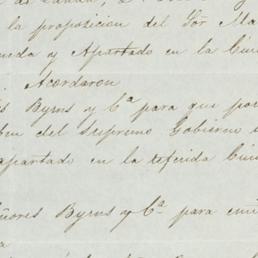 la proposicion del Sor Ma
neda y Apartado en la Ciu
Acordaron
s Byrns y Ca para que por
ben del Supremo Gobierno
apartado en la referida Ciu
ñores Byrns y Ca para